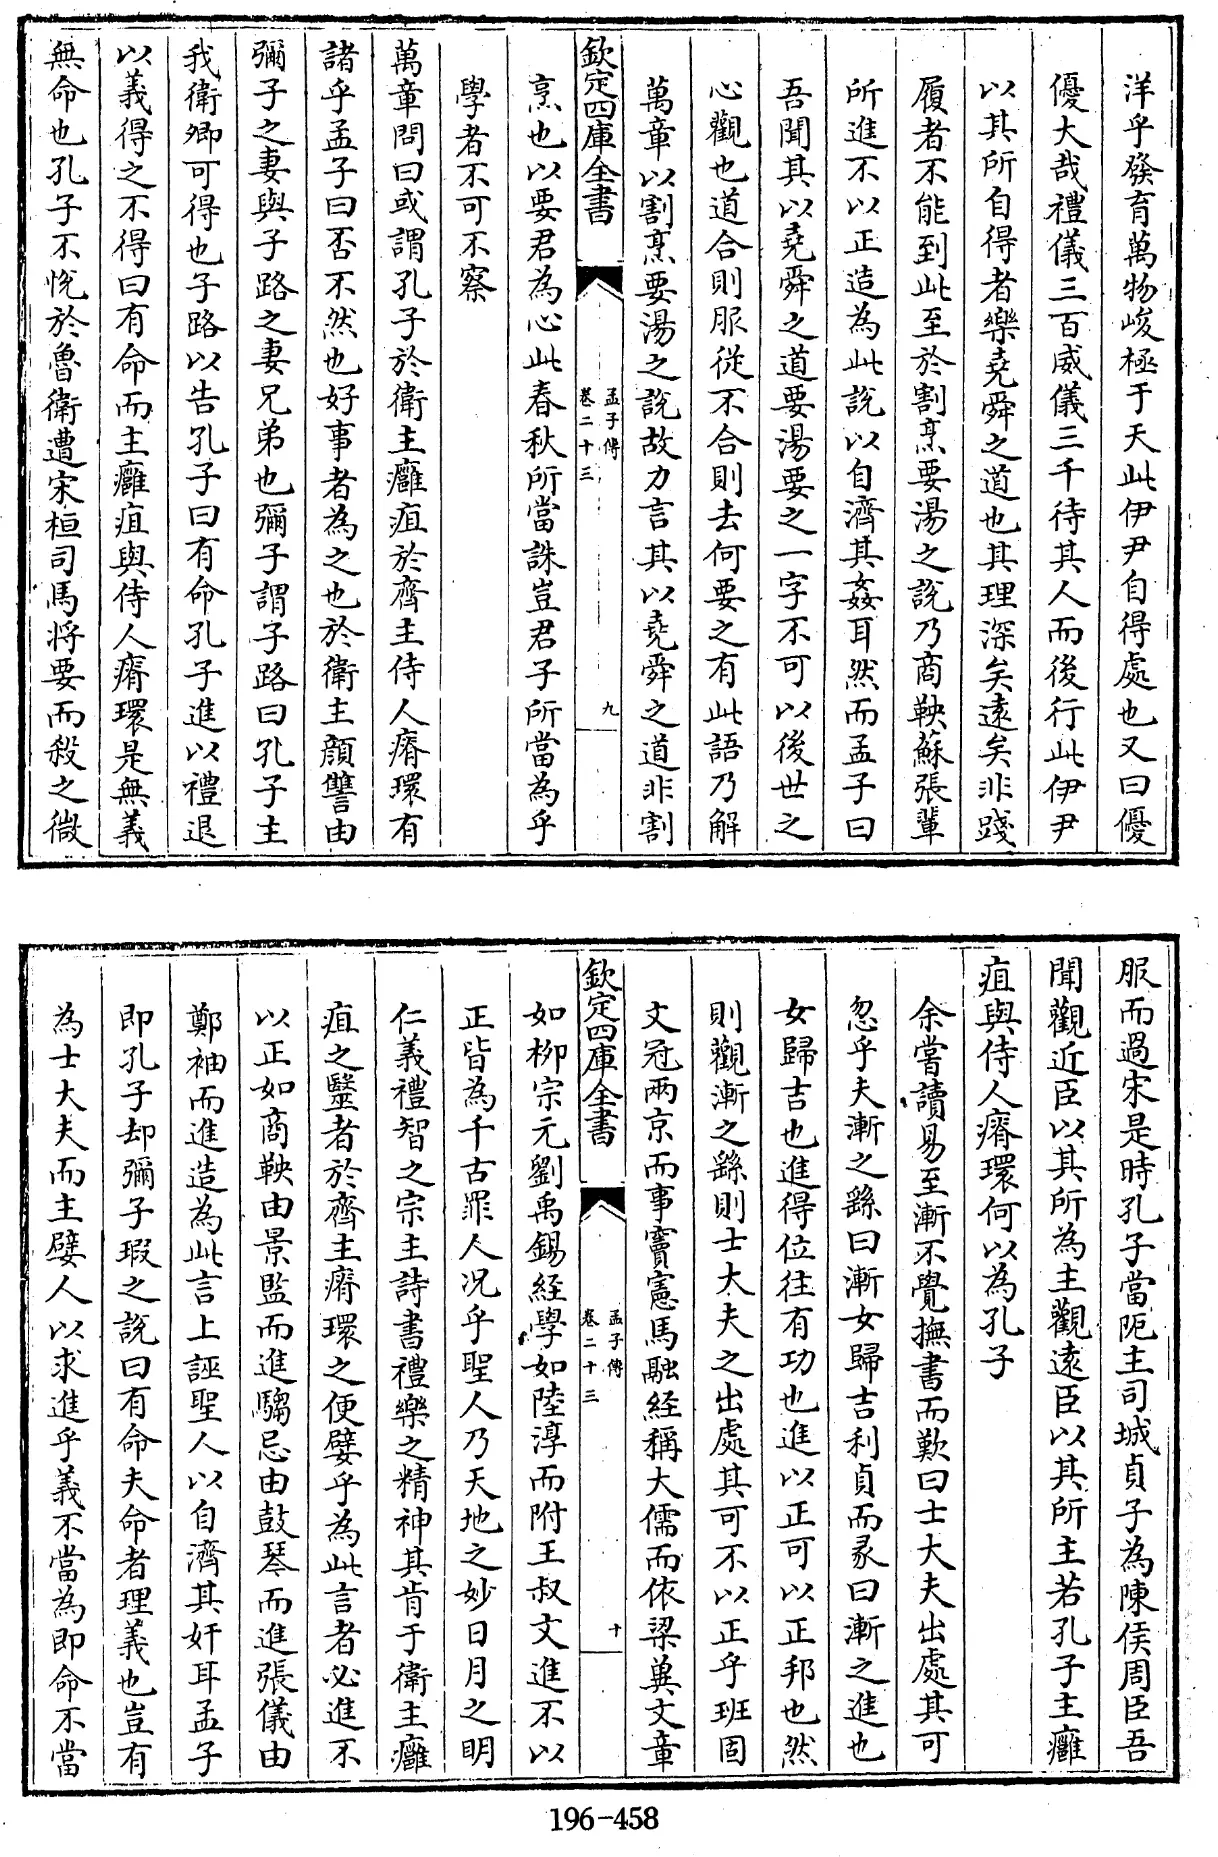 洋乎發育萬物峻極于天此伊尹自得處也又曰優
優大哉禮儀三百威儀三千待其人而後行此伊尹
以其所自得者樂堯舜之道也其理深矣遠矣非踐
履者不能到此至於割烹要湯之說乃商鞅蘇張輩
所進不以正造為此說以自濟其姦耳然而孟子曰
吾聞其以堯舜之道要湯要之一字不可以後世之
心觀也道合則服從不合則去何要之有此語乃解
萬章以割烹要湯之說故力言其以堯舜之道非割
欽定四庫全書
孟子傳
卷二十三
九
烹也以要君為心此春秋所當誅豈君子所當為乎
學者不可不察
萬章問曰或謂孔子於衛主癰疽於齊主侍人瘠環有
諸乎孟子曰否不然也好事者為之也於衛主顔讐由
彌子之妻與子路之妻兄弟也彌子謂子路曰孔子主
我衛卿可得也子路以告孔子曰有命孔子進以禮退
以義得之不得曰有命而主癰疽與侍人瘠環是無義
無命也孔子不悅於魯衛遭宋桓司馬將要而殺之微
服而過宋是時孔子當阨主司城貞子為陳侯周臣吾
聞觀近臣以其所為主觀遠臣以其所主若孔子主癰
疽與侍人瘠環何以為孔子
余嘗讀易至漸不覺撫書而歎曰士大夫出處其可
忽乎夫漸之繇曰漸女歸吉利貞而彖曰漸之進也
女歸吉也進得位往有功也進以正可以正邦也然
則觀漸之繇則士大夫之出處其可不以正乎班固
文冠兩京而事竇憲馬融經稱大儒而依梁冀文章
欽定四庫全書
孟子傳
卷二十三
十
如柳宗元劉禹錫經學如陸淳而附王叔文進不以
正皆為千古罪人况乎聖人乃天地之妙日月之明
仁義禮智之宗主詩書禮樂之精神其肯于衛主癰
疽之毉者於齊主瘠環之便嬖乎為此言者必進不
以正如商鞅由景監而進騶忌由鼓琴而進張儀由
鄭袖而進造為此言上誣聖人以自濟其奸耳孟子
即孔子却彌子瑕之說曰有命夫命者理義也豈有
為士大夫而主嬖人以求進乎義不當為即命不當
196-458